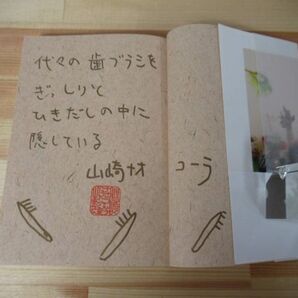 代々の歯ブラシを
ぎっしりと
ひきだしの中に
隠している
山崎ナオコーラ